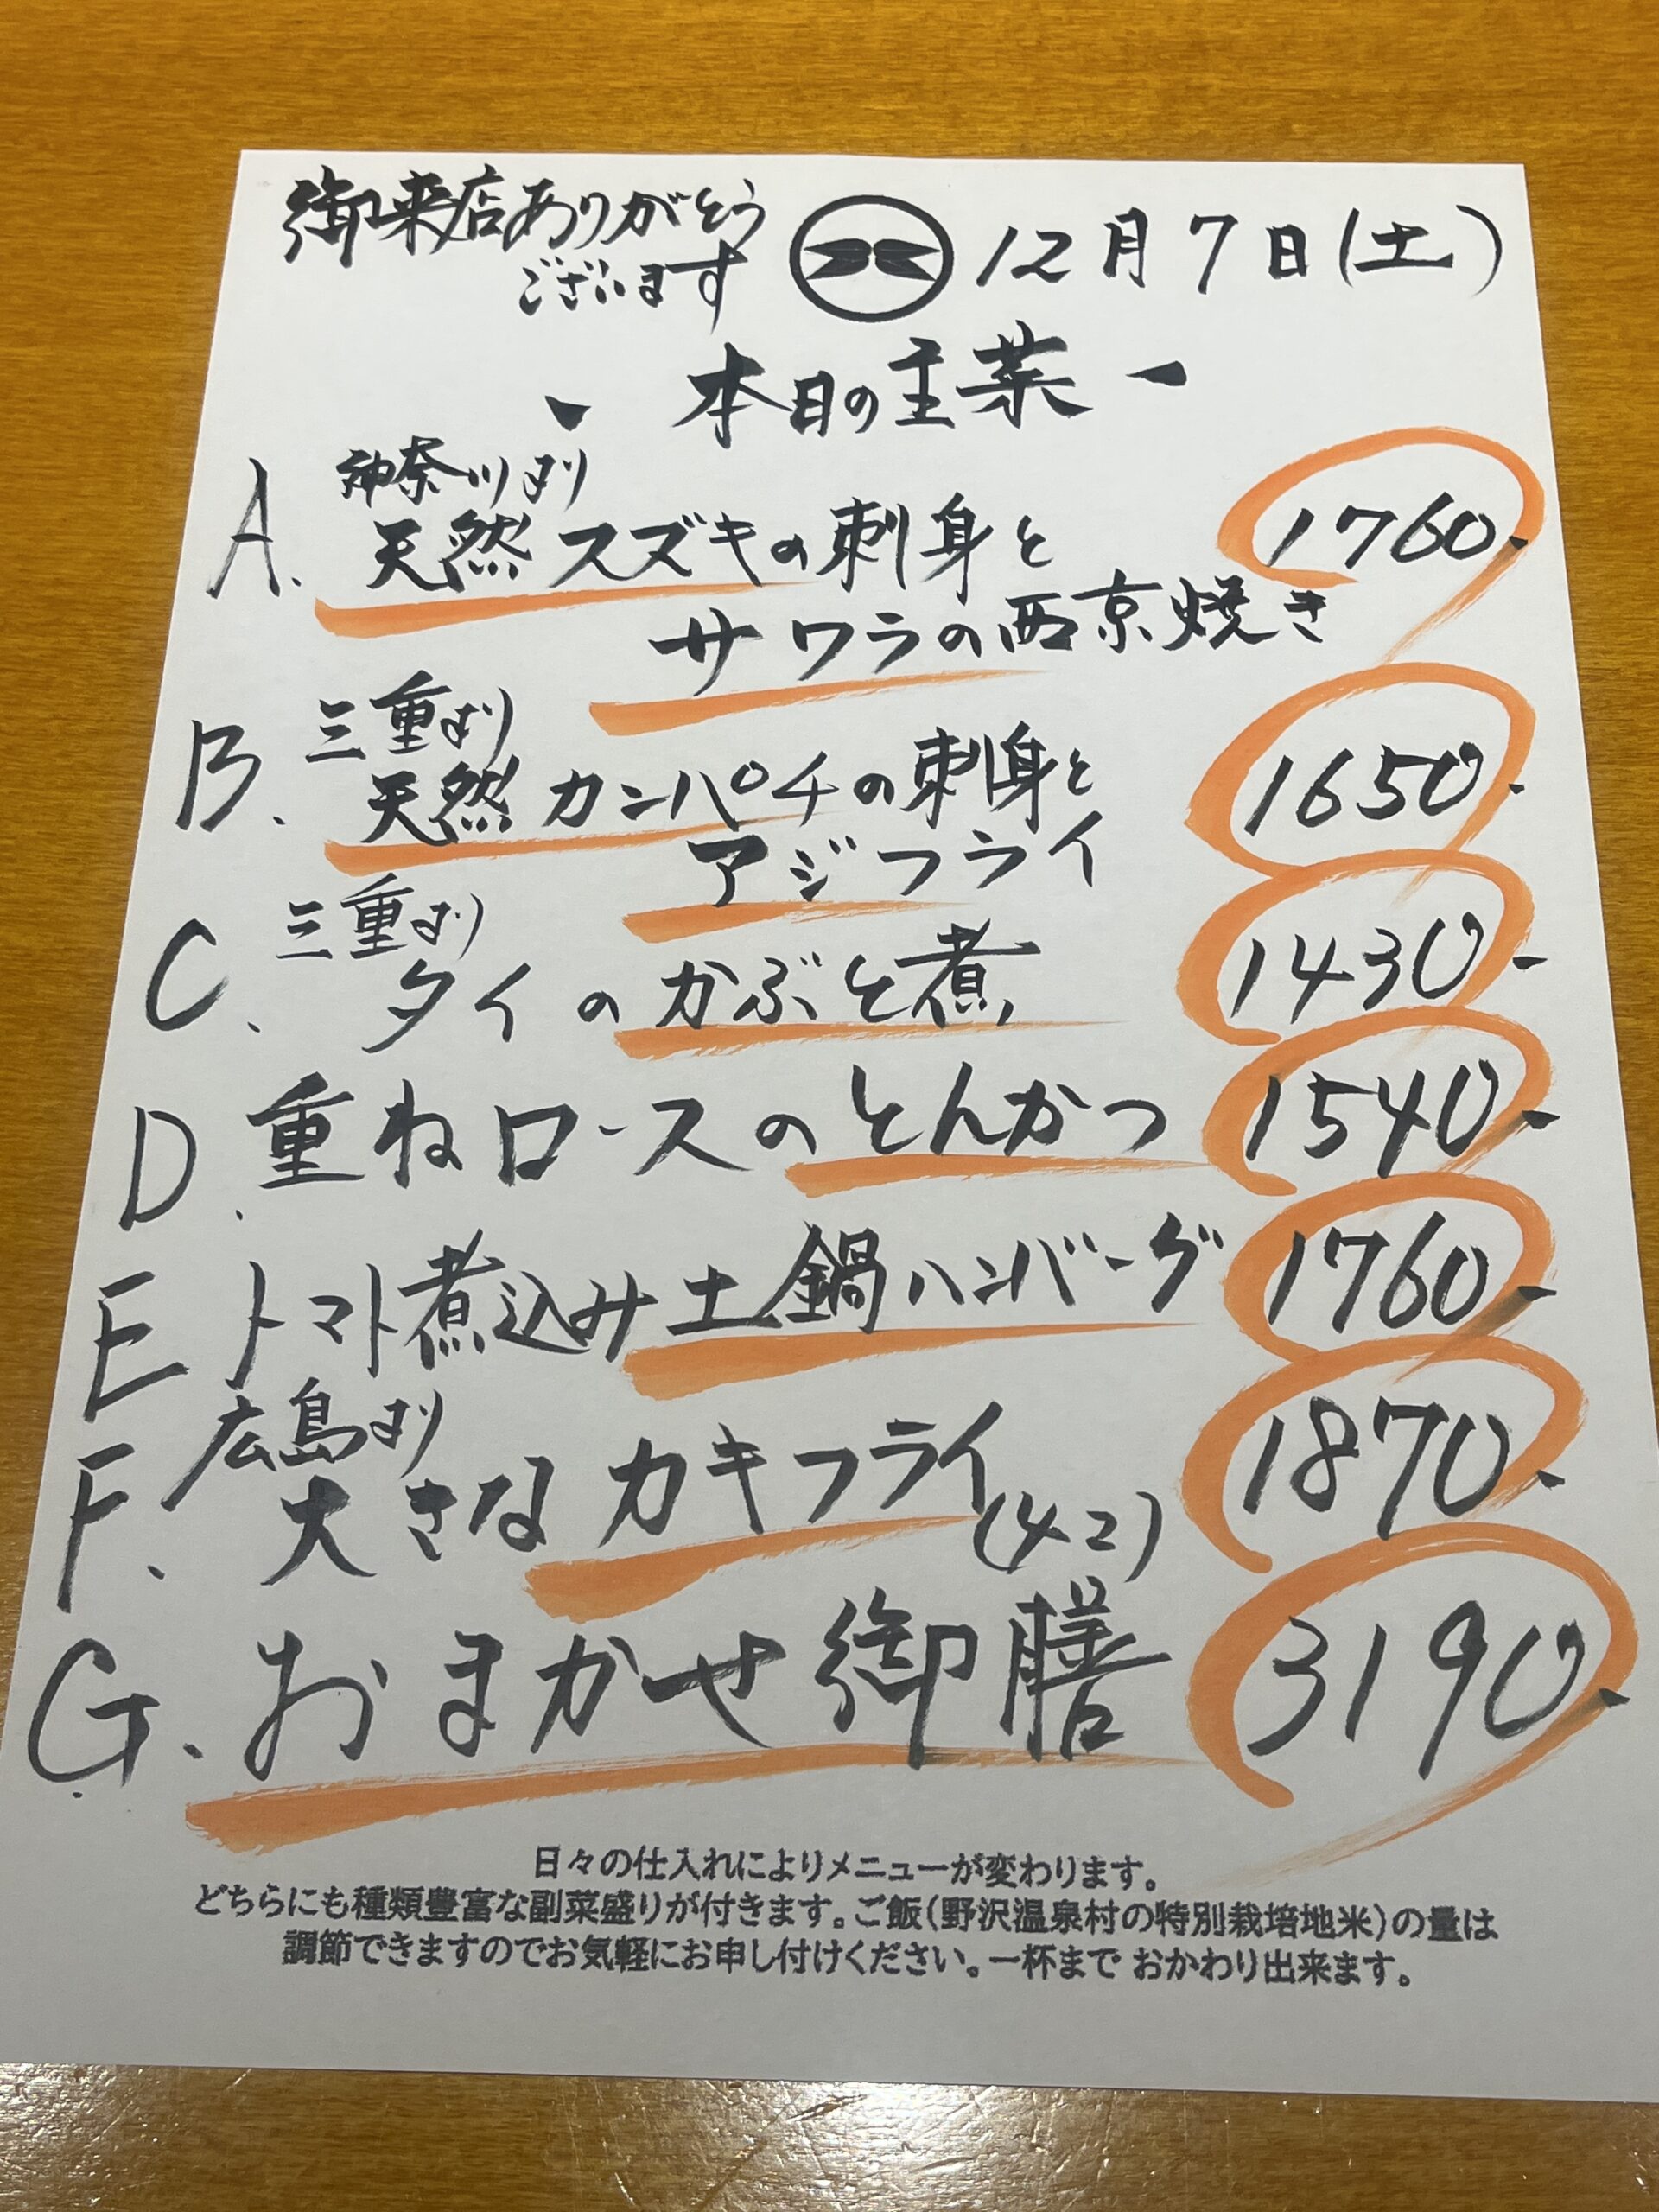 御来店ありがとう
ございます
12月7日(土)
- 本日の主菜 -
神奈川より
A. 天然スズキの刺身と 1760-
サワラの西京焼き
三重より
B. 天然カンパチの刺身と 1650-
アジフライ
三重より
C. タイのかぶと煮 1430-
D. 重ねロースのとんかつ 1540-
E トマト煮込み土鍋ハンバーグ 1760-
広島より
F. 大きなカキフライ(4コ) 1870-
G. おまかせ御膳 3190-
日々の仕入れによりメニューが変わります。
どちらにも種類豊富な副菜盛りが付きます。ご飯(野沢温泉村の特別栽培地米)の量は
調節できますのでお気軽にお申し付けください。一杯まで おかわり出来ます。